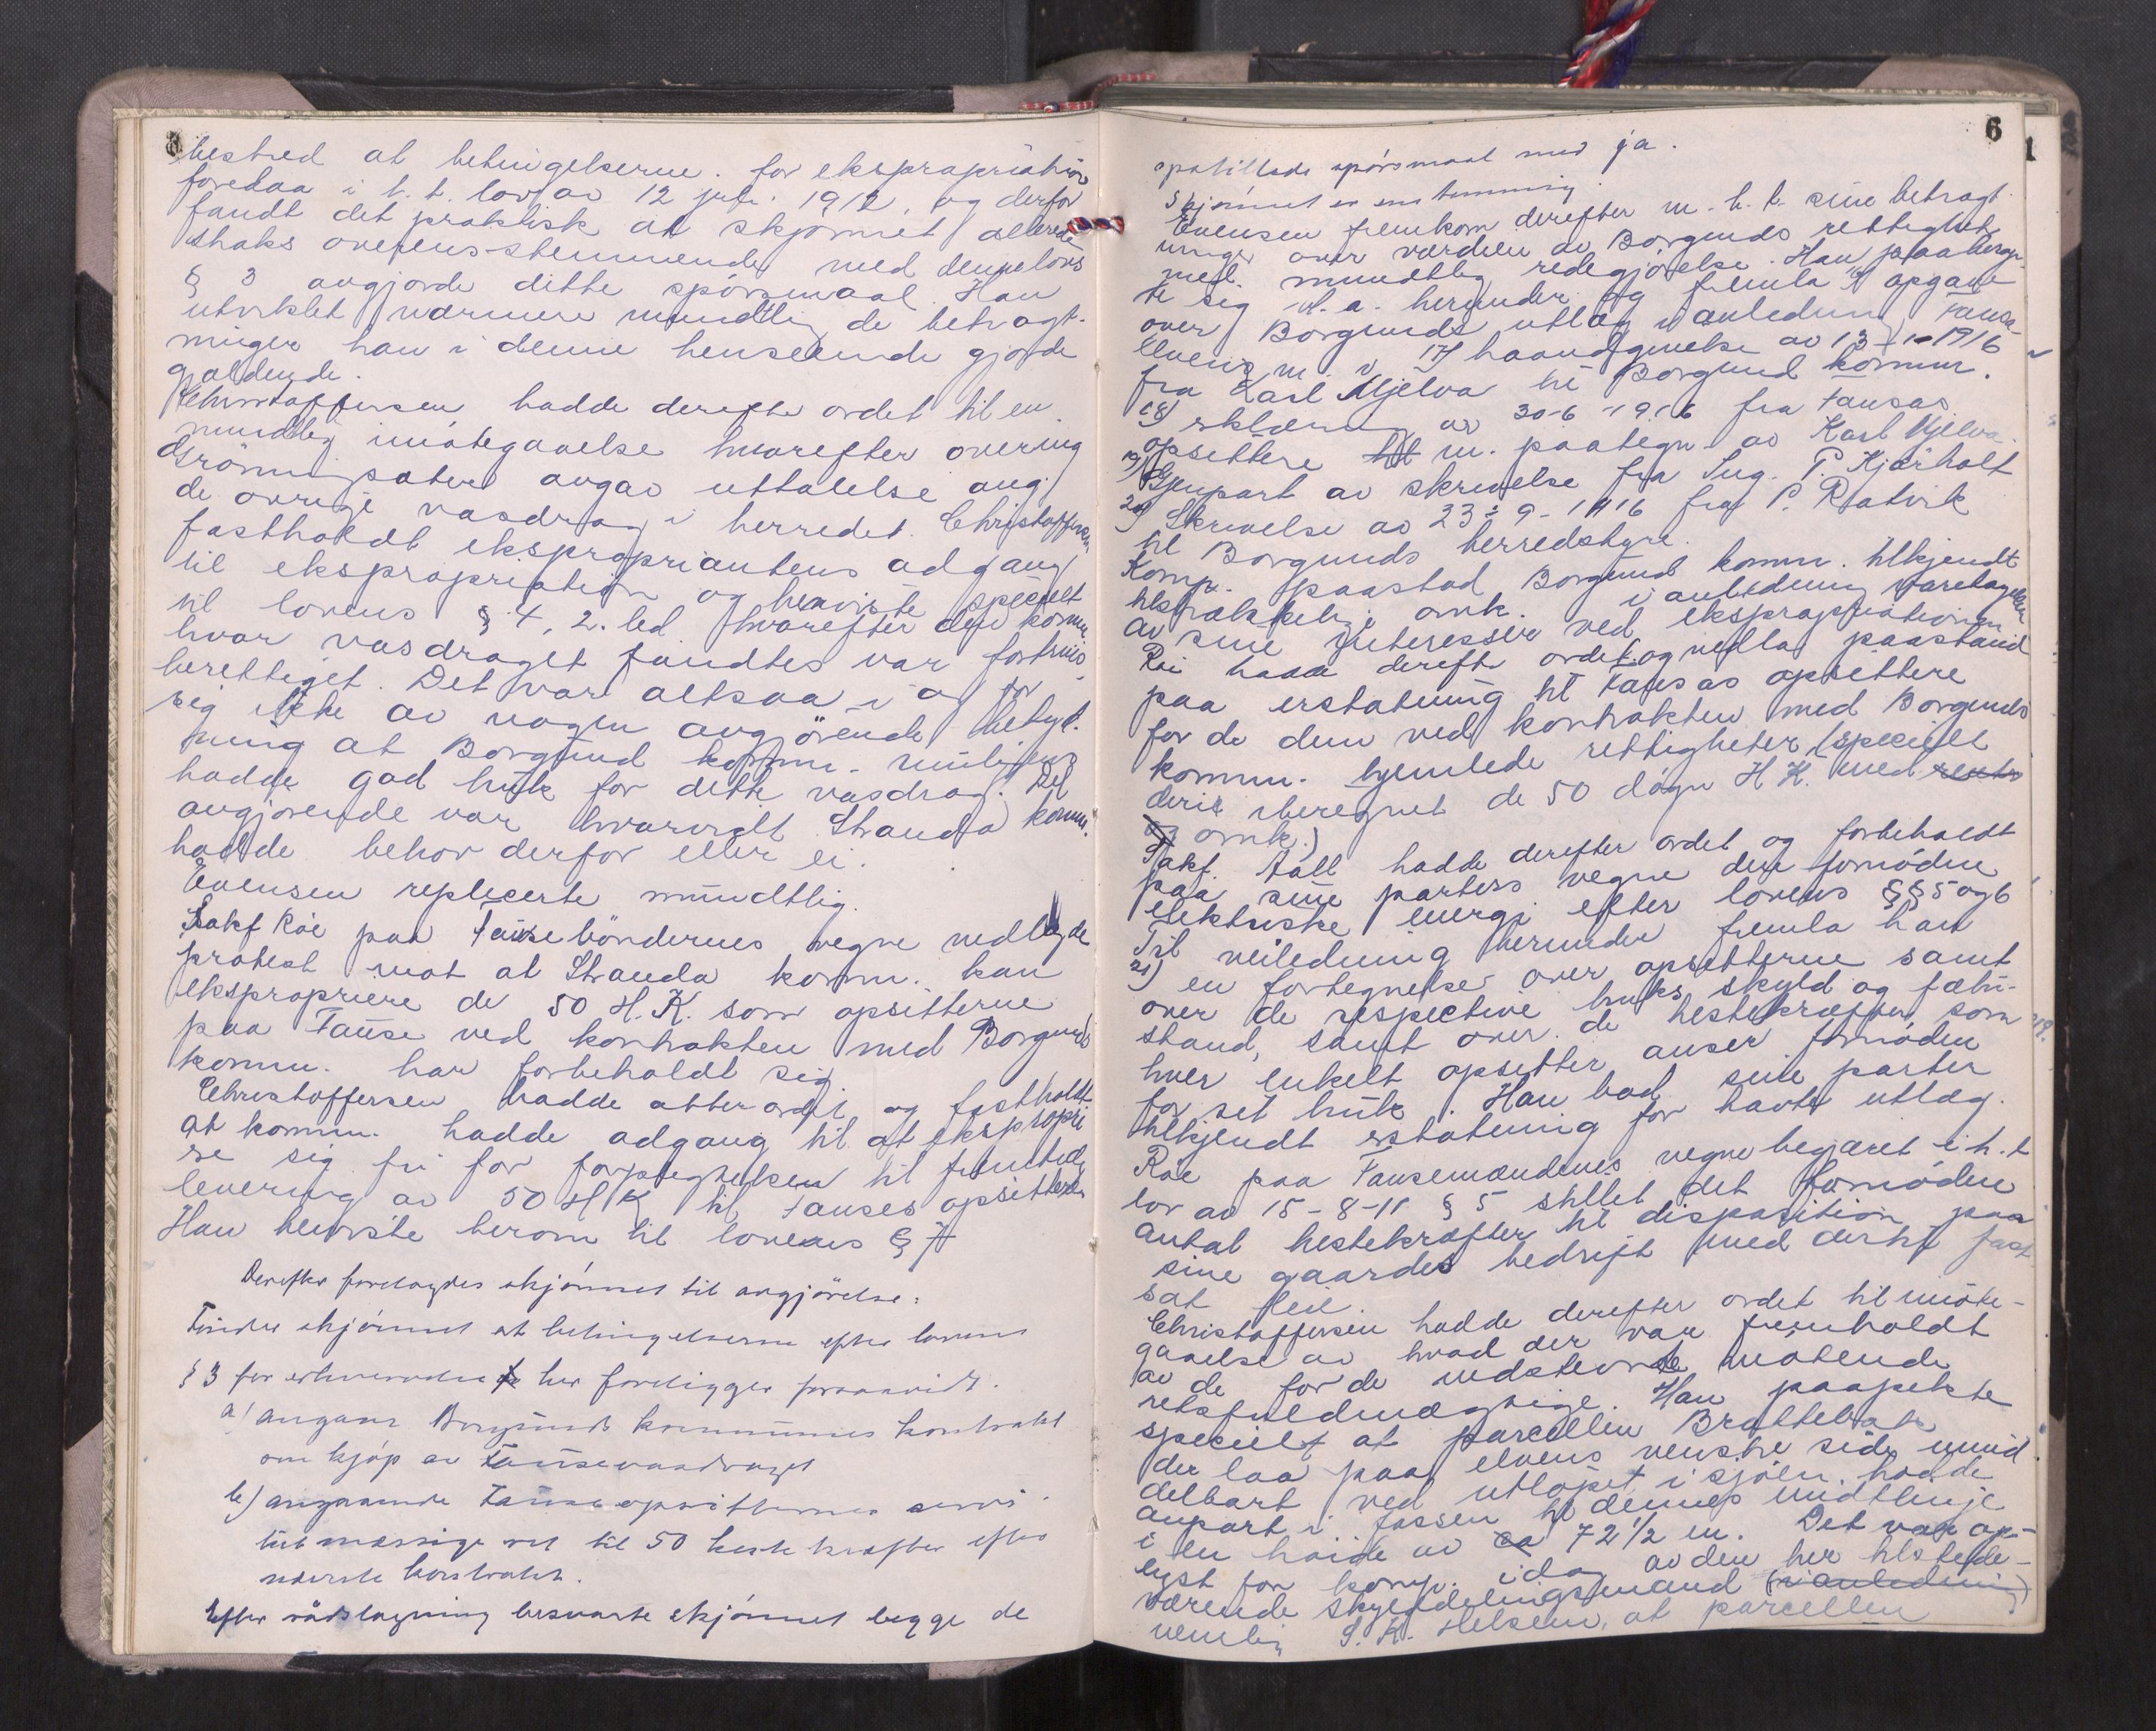 bestred at betingelserne for ekspropriation
forelaa i h. t. lov av 12 juli 1912, og derfor
fandt det praktisk at skjønnet allerede
straks overens-stemmende med denne lovs
§ 3 avgjorde dette spørsmaal. Han
utviklet nærmere mundtlig de betragt-
ninger han i denne henseende gjorde
gjældende.
Christoffersen hadde derefter ordet til en
mundtlig imøtegaaelse hvorefter
avgav uttalelse ang.
de øvrige vasdrag i herredet. Christoffersen
fastholdt ekspropriantens adgang
til ekspropriation og henviste specielt
til lovens § 4, 2. led hvorefter den komm.
hvor vasdraget fandtes var fortrins-
berettiget. Det var altsaa i og for
sig ikke av nogen avgjørende betyd-
ning at Borgund komm. muligens
hadde god bruk for dette vasdrag. Det
avgjørende var hvorvidt Stranda komm.
hadde behov derfor eller ei.
Evensen replicerte mundtlig.
Sakf Roe paa Fausebøndernes vegne nedlagde
protest mot at Stranda komm. kan
ekspropriere de 50 H.K. som opsitterne
paa Fause ved kontrakten med Borgund
komm. har forbeholdt sig.
Christoffersen hadde atter ordet og fastholdt
at komm. hadde adgang til at ekspropri
re sig fri for forpligtelsen til fremtidig
levering av 50 HK til Fauses opsittere
Han henviste herom til lovens § 7
Derefter foretages skjønnet til avgjørelse:
Finder skjønnet at betingelserne efter lovens
§ 3 for erhvervelse her foreligger forsaavidt.
a) angaar Borgund kommunes kontrakt
om kjøp av Fausevasdraget
b) angaaende Fause opsitternes servi-
tutmæssige ret til 50 hestekræfter efter
nævnte kontrakt.
Efter rådslagning besvarte skjønnet begge de
6
1
opstillede spørsmaal med ja.
Skjønnet er enstemmig.
Evensen fremkom derefter m. h. t. sine betragt-
ninger over værdien av Borgunds rettigheter
med mundtlig redegjørelse. Han paaberop-
te sig bl. a. herunder og fremla 16 opgave
over Borgunds utlæg i anledning Fausa-
elven m. v. 17 haandgivelse av 13-1-1916
fra Karl Mjelva til Borgund komm.
18) erklæring av 30-6-1916 fra Fausas
opsittere m. paategn. av Karl Mjelva.
19) Gjenpart av skrivelse fra Ing. P. Kjørholt
20) Skrivelse av 23-9-1916 fra P. Ratvik
til Borgunds herredstyre.
Komp. paastod Borgund komm. tilkjendt
tilstrækkelige omk. i anledning varetagelsen
av sine interesser ved ekspropriationen
Roe hadde derefter ordet og nedla paastand
paa erstatning til Fausas opsittere
for de dem ved kontrakten med Borgund
komm. hjemlede rettigheter (specielt
deri iberegnet de 50 døgn H K. med
omk.)
Sakf. Aall hadde derefter ordet og forbeholdt
paa sine parters vegne den fornødne
elektriske energi efter lovens §§ 5 og 6
Til veiledning herunder fremla han
21) en fortegnelse over opsitterne samt
over de respective bruks skyld og fæbe-
stand, samt over de hestekræfter som
hver enkelt opsitter anser fornøden
for sit bruk. Han bad sine parter
tilkjendt erstatning for havte utlæg.
Roe paa Fausemændenes vegne begjæret i h. t
lov av 15-8-11 § 5 stillet det fornødne
antal hestekræfter til disposition paa
sine gaardes bedrift med dertil fast
sat
Christoffersen hadde derefter ordet til imøte-
gaaelse av hvad der var fremholdt
av de for de indstevnte møtende
retsfuldmægtige. Han paapekte
specielt at parcellen Brattebak
der laa paa elvens venstre side umid
delbart ved utløpet i sjøen, hadde
anpart i fossen til dennes midtlinje
i en høide av 72 1/2 m. Det var op-
lyst for komp. idag av den her tilstede-
værende skyldelingsmand
nemlig S. K. Helsem, at parcellen